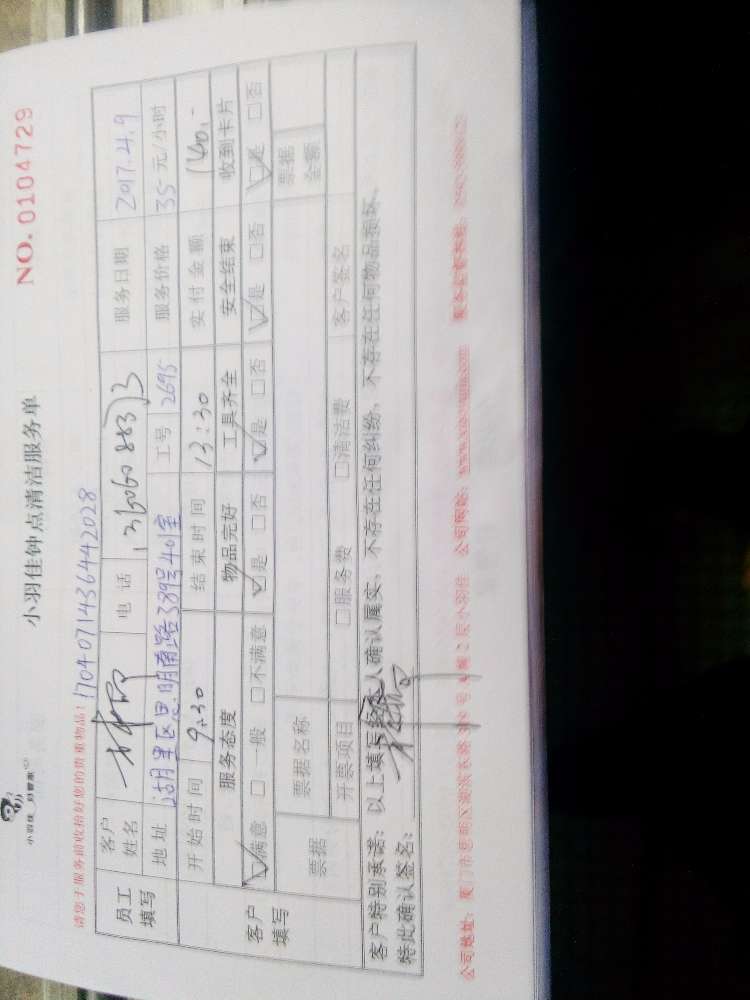 小羽佳钟点清洁服务单
NO. 0104729
小羽佳 好管家
请您于服务前收拾好您的贵重物品！170407143644 2028
员工填写
客户姓名 林 电话 服务日期 2017.4.9
地址 湖里区思明南路389号401室 工号 2695 服务价格 35元/小时
开始时间 9:30 结束时间 13:30 实付金额 140.-
客户填写
服务态度 物品完好 工具齐全 安全结束 收到卡片
☑满意 □一般 □不满意 ☑是 □否 ☑是 □否 ☑是 □否 ☑是 □否
票据 票据名称 票据金额
开票项目 □服务费 □清洁费 客户签名
客户特别承诺：以上填写经本人确认属实，不存在任何纠纷，不存在任何物品损坏。
特此确认签名：
公司地址：厦门市思明区湖滨东路 号 2层小羽佳 公司网站：